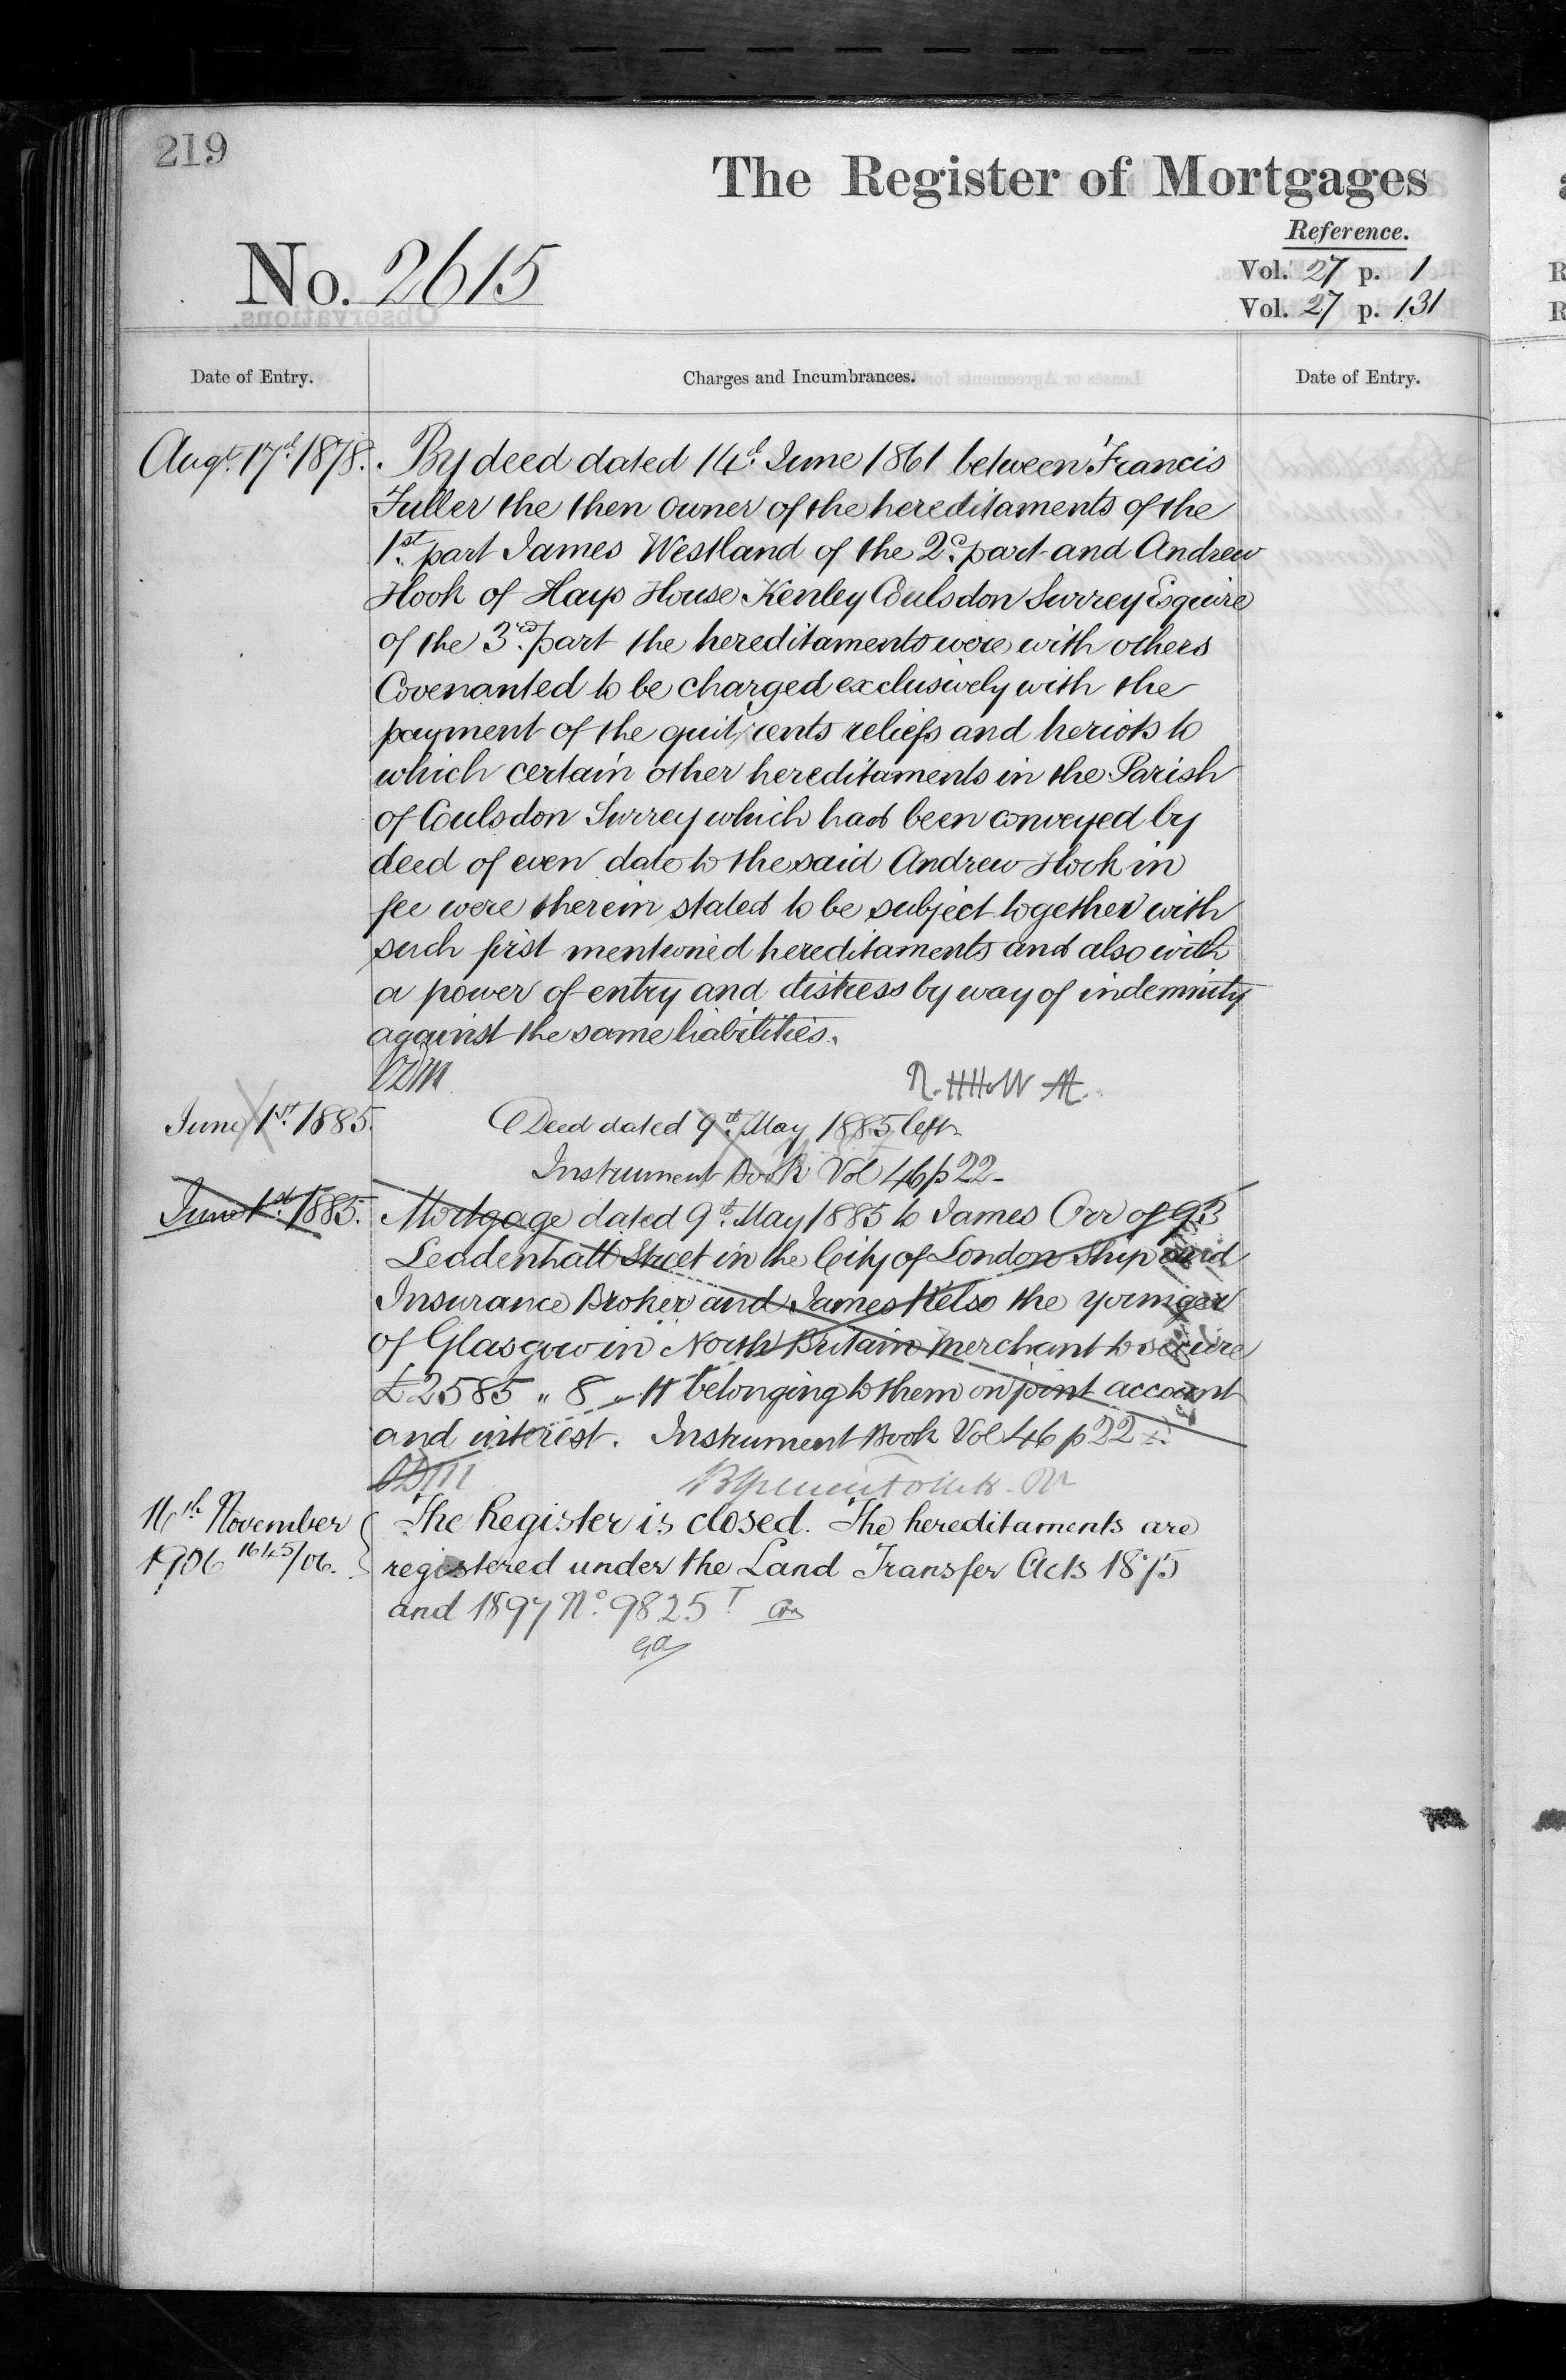 219
The Register of Mortgages
Reference.
No. 2615
Vol. 27 p. 1
Vol. 27 p. 131
Date of Entry.
Charges and Incumbrances.
Date of Entry.
Augt. 17th 1878. By deed dated 14th June 1861 between Francis
Fuller the then owner of the hereditaments of the
1st part James Westland of the 2d part and Andrew
Hook of Hays House Kenley Coulsdon Surrey Esquire
of the 3rd part the hereditaments were with others
Covenanted to be charged exclusively with the
payment of the quit rents reliefs and heriots to
which certain other hereditaments in the Parish
of Coulsdon Surrey which had been conveyed by
deed of even date to the said Andrew Hook in
fee were therein stated to be subject together with
such first mentioned hereditaments and also with
a power of entry and distress by way of indemnity
against the same liabilities.
June 1st 1885. Deed dated 9th May 1885 left
Instrument Book Vol 46 p 22
June 1st 1885. Mortgage dated 9th May 1885 to James Orr of 93
Leadenhall Street in the City of London Ship and
Insurance Broker and James Kelso the younger
of Glasgow in North Britain Merchant to secure
£2585 " 8 " 11 belonging to them on joint account
and interest. Instrument Book Vol 46 p 22
16th November The Register is closed. The hereditaments are
1906 1645/06. registered under the Land Transfer Acts 1875
and 1897 No. 9825